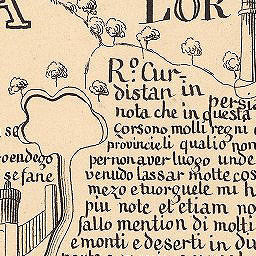 A LOR
Rº. Cur-
distan in persi
nota che in questa
corsono molli regni e
provincieli qualio non
per non aver luogo unde
venudo lassar molte cos
mezo e tuorguele mi h
piu note et etiam no
fallo mention di molti
e monti e deserti in du
se
oendego
se fane